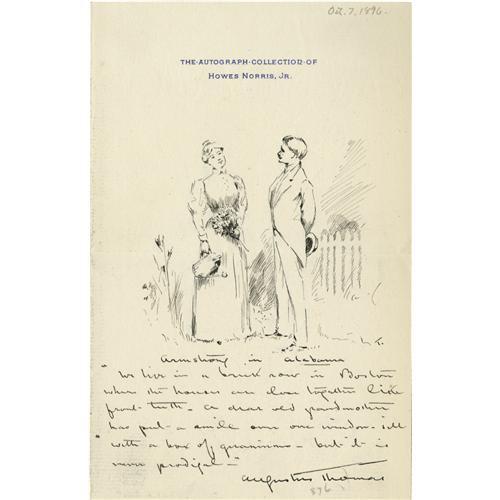 Oct. 7, 1896.
THE·AUTOGRAPH·COLLECTION·OF
HOWES NORRIS, JR.
Armstrong in Alabama
"We live in a brick row in Boston
where the houses are close together like
front teeth. A dear old grandmother
has put a smile over one window-sill
with a box of geraniums - but is
mere prodigal -"
Augustus Thomas
876